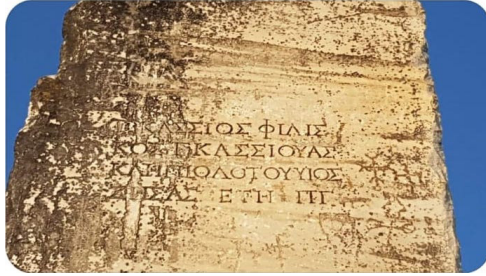 Γ ΚΑΣΣΙΟΣ ΦΙΛΙΣ
ΚΟΣ Γ ΚΑΣΣΙΟΥ ΑΣ
ΚΛΗΠΙΟΔΟΤΟΥ ΥΙΟΣ
ΖΗΣΑΣ ΕΤΗ ΠΓ